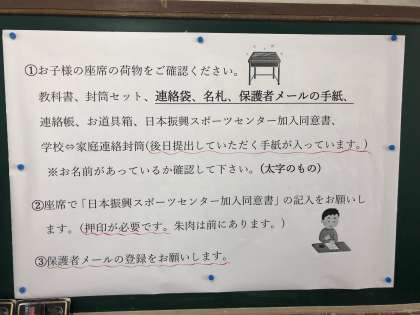 ①お子様の座席の荷物をご確認ください。
教科書、封筒セット、連絡袋、名札、保護者メールの手紙、
連絡帳、お道具箱、日本振興スポーツセンター加入同意書、
学校⇔家庭連絡封筒(後日提出していただく手紙が入っています。)
※お名前があっているか確認して下さい。(太字のもの)
②座席で「日本振興スポーツセンター加入同意書」の記入をお願いし
ます。(押印が必要です。朱肉は前にあります。)
③保護者メールの登録をお願いします。